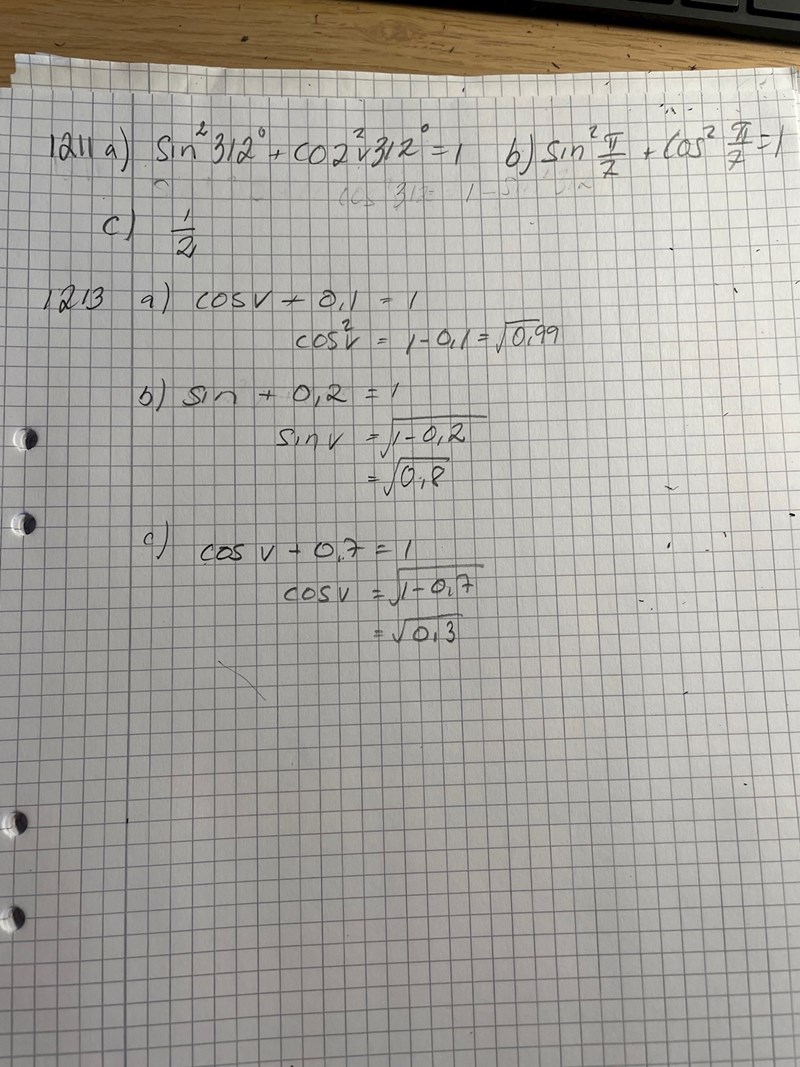 1211 a) sin² 312° + co2²v 312° = 1 b) sin² π/7 + cos² π/7 = 1
cos 312 = 1 - s
c) 1/2
1213 a) cos v + 0,1 = 1
cos²v = 1 - 0,1 = √0,99
b) sin + 0,2 = 1
sin v = √1-0,2
= √0,8
c) cos v + 0,7 = 1
cos v = √1-0,7
= √0,3